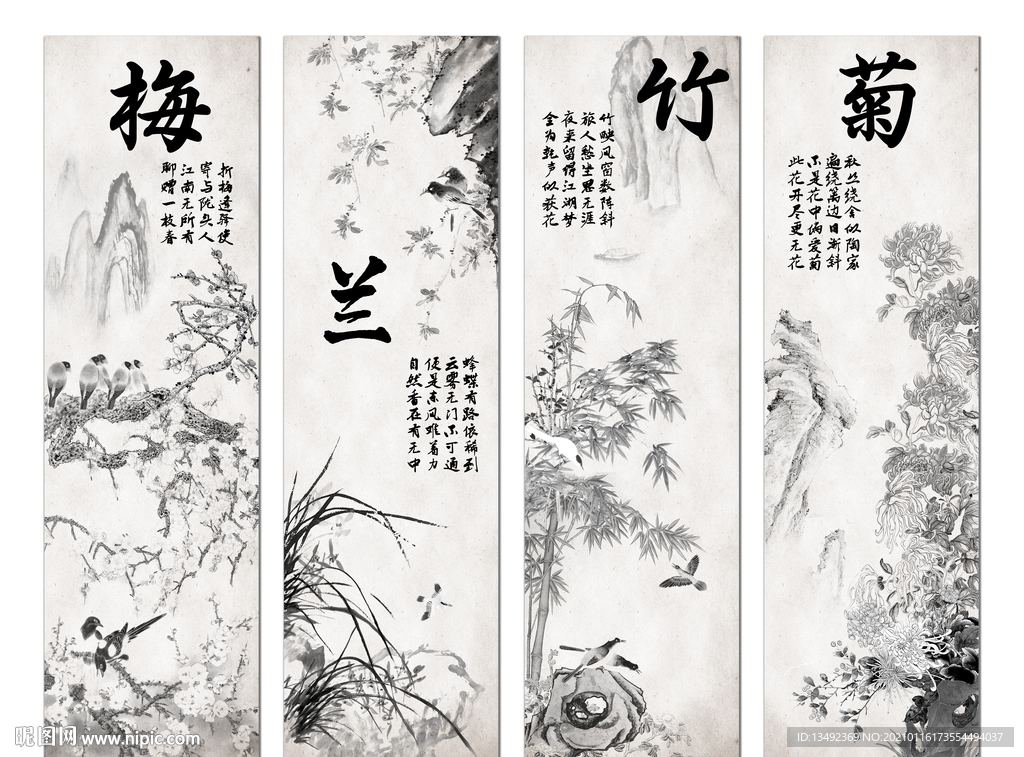 梅
折梅逢驿使
寄与陇头人
江南无所有
聊赠一枝春
兰
蜂蝶有路依稀到
云雾无门不可通
便是东风难着力
自然香在有无中
竹
竹映风窗数阵斜
旅人愁坐思无涯
夜来留得江湖梦
全为乾声似荻花
菊
秋丛绕舍似陶家
遍绕篱边日渐斜
不是花中偏爱菊
此花开尽更无花
昵图网 www.nipic.com
ID:13492369 NO:20210116173554494037